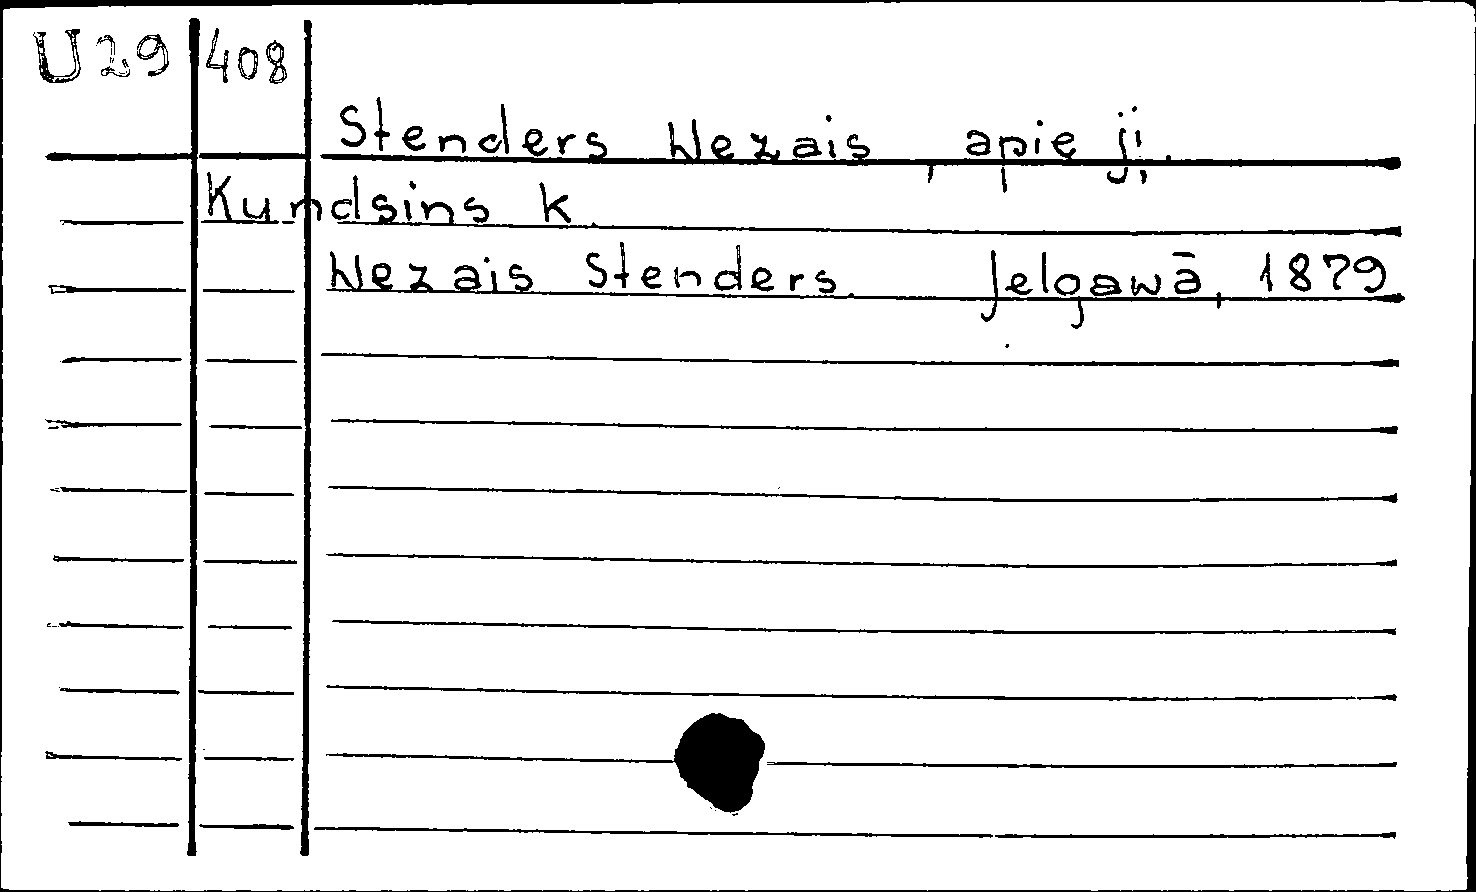 U29 408
Stenders Wezais, apie jį.
Kundsins K.
Wezais Stenders. Jelgawā, 1879